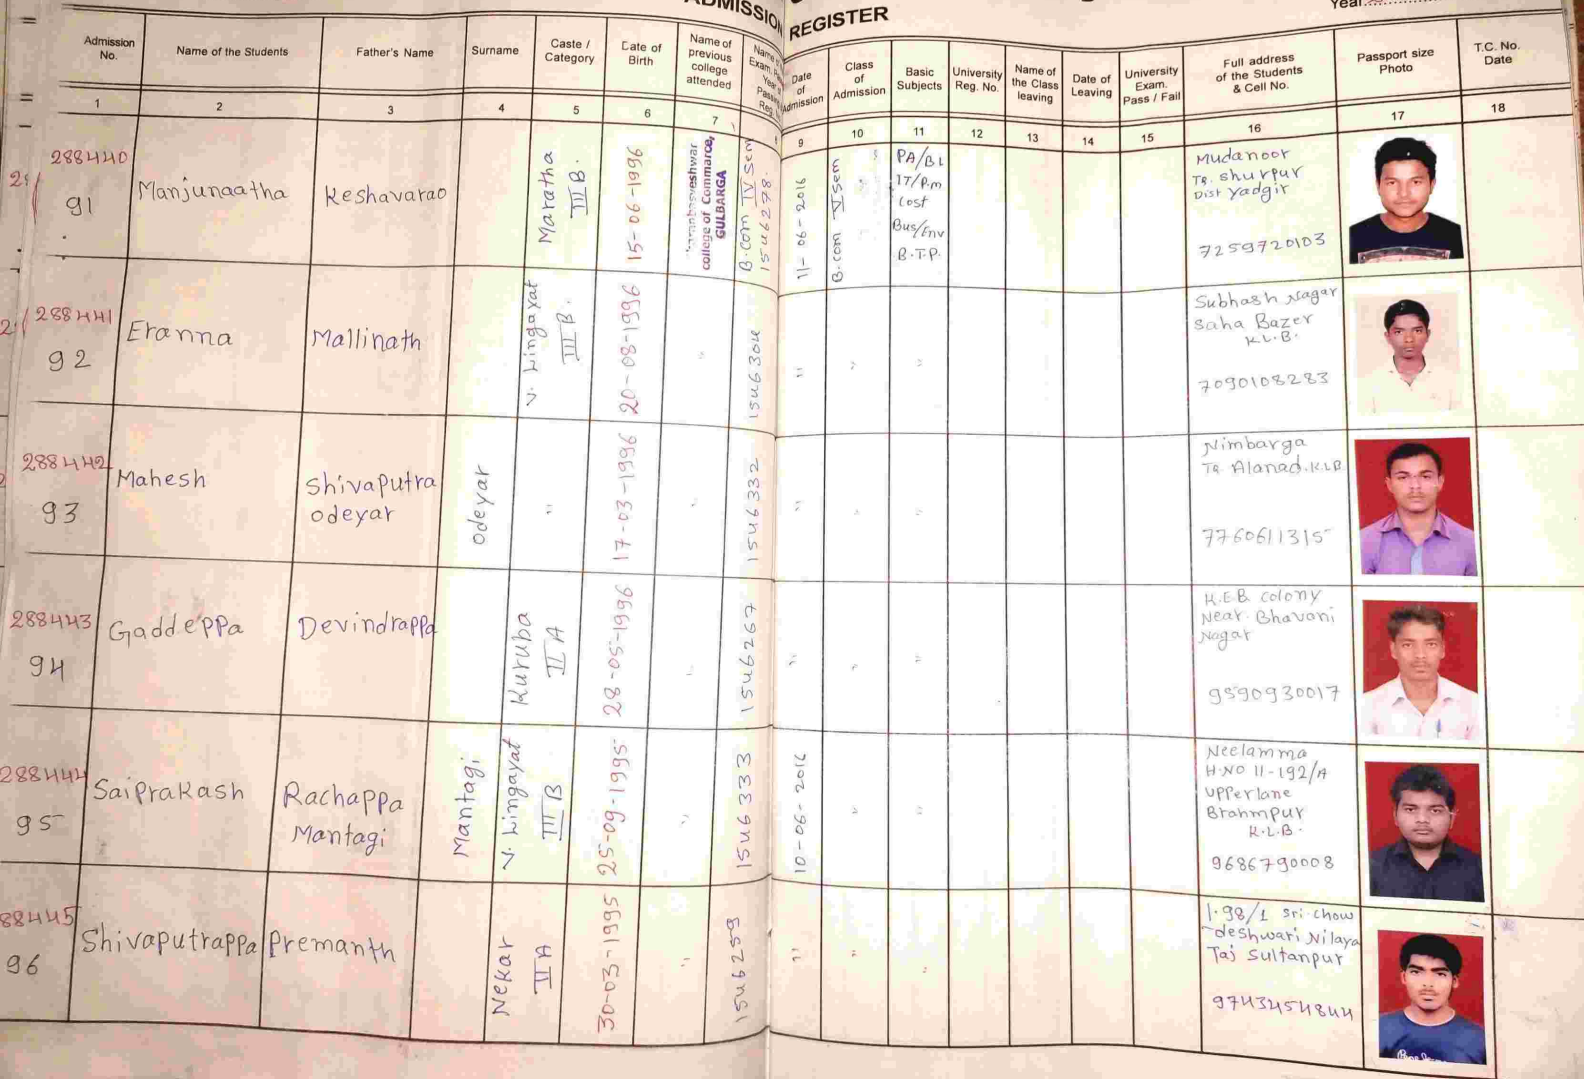 ADMISSION REGISTER
Year
Admission No.
Name of the Students
Father's Name
Surname
Caste / Category
Date of Birth
Name of previous college attended
Date of Admission
Class of Admission
Basic Subjects
University Reg. No.
Name of the Class leaving
Date of Leaving
University Exam. Pass / Fail
Full address of the Students & Cell No.
Passport size Photo
T.C. No. Date
1 2 3 4 5 6 7 9 10 11 12 13 14 15 16 17 18
288440
91
Manjunaatha
Keshavarao
Maratha
III B.
15-06-1996
college of Commerce,
GULBARGA
B.com IV Sem
15U6278.
11-06-2016
B.com V Sem
PA/BL
IT/P.m
Cost
Bus/Env
B.T.P.
Mudanoor
TQ. Shurpur
Dist Yadgir
7259720103
288441
92
Eranna
Mallinath
V. Lingayat
III B.
20-08-1996
"
15U6304
"
"
"
Subhash Nagar
Saha Bazer
K.L.B.
7090108283
288442
93
Mahesh
Shivaputra
odeyar
odeyar
"
17-03-1996
"
15U6332
"
"
"
Nimbarga
TQ Alanad. K.L.B
7760611315
288443
94
Gaddeppa
Devindrappa
Kuruba
II A
28-05-1996
"
15U6267
"
"
"
K.E.B colony
Near Bhavani
Nagar
9590930017
288444
95
Saiprakash
Rachappa
Mantagi
Mantagi
V. Lingayat
III B
25-09-1995
"
15U6333
10-06-2016
"
"
Neelamma
H.NO 11-192/A
Upperlane
Brahmpur
K.L.B.
9686790008
88445
96
Shivaputrappa
Premanth
Nekar
II A
30-03-1995
"
15U6259
"
"
"
1-98/1 Sri-Chow
-deshwari Nilaya
Taj Sultanpur
9743454844